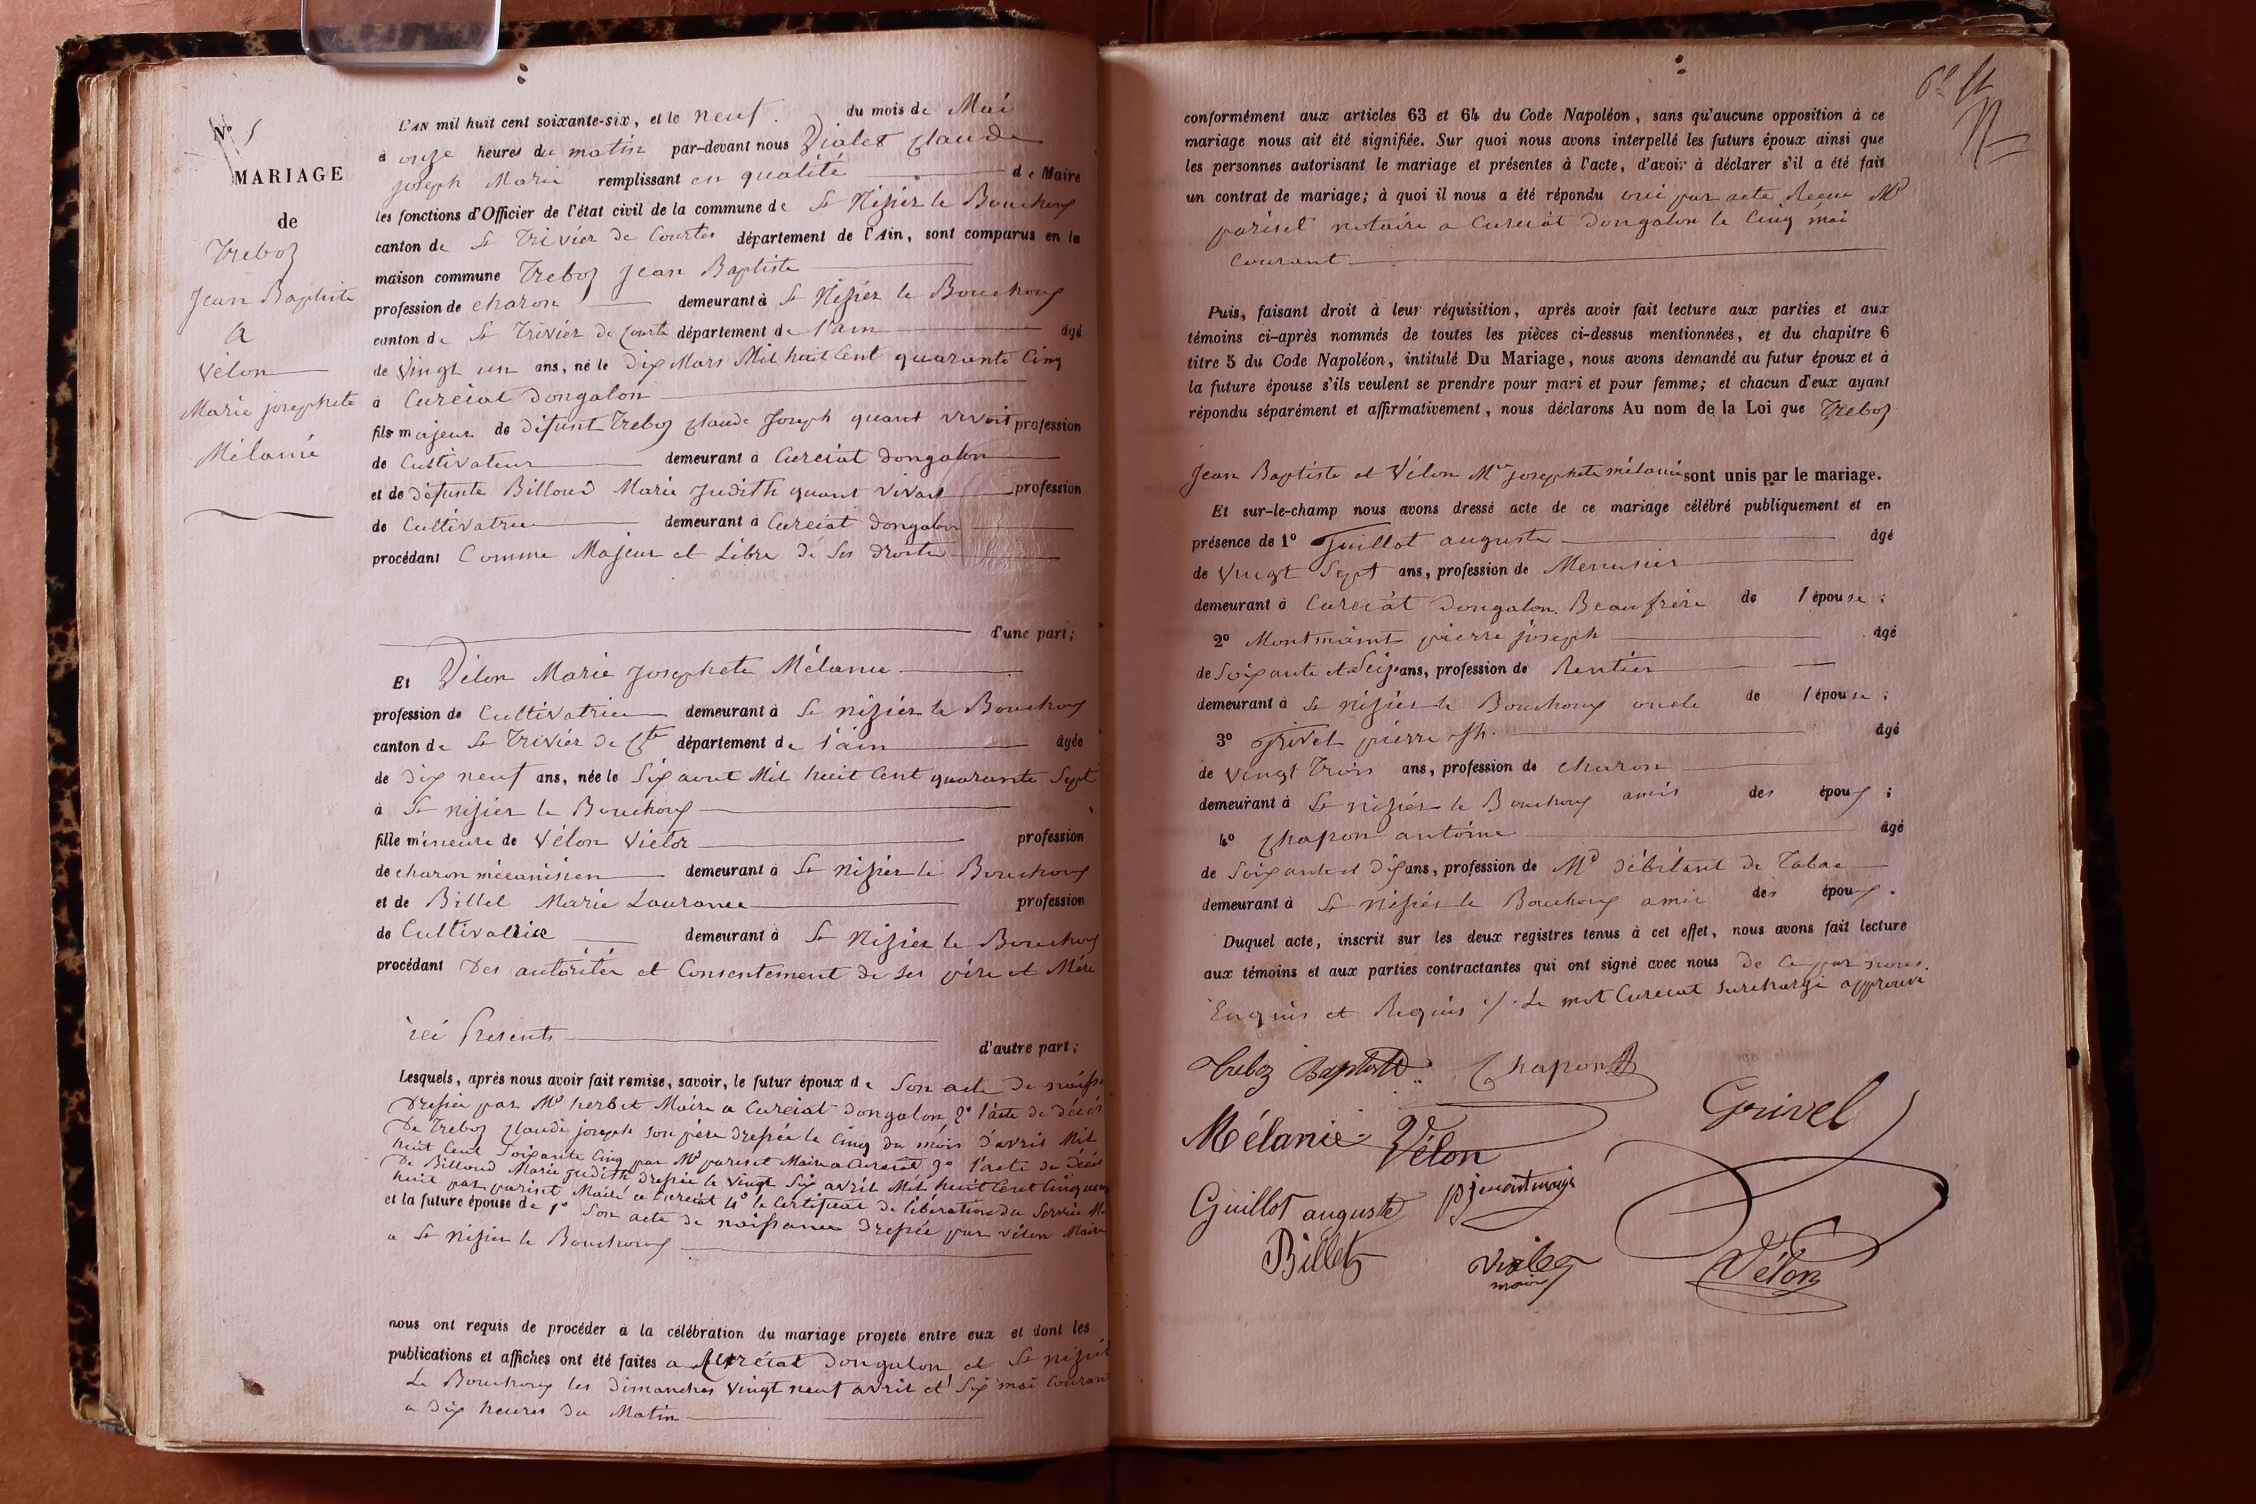 N° 5
MARIAGE
de
Treboz
Jean Baptiste
a
Vélon
Marie josephete
Mélanie
L'AN mil huit cent soixante-six, et le neuf du mois de Mai
à onze heures du matin par-devant nous Vialet Claude
joseph Marie remplissant en qualité de Maire
les fonctions d'Officier de l'état civil de la commune de St Nizier le Bouchoux
canton de St Trivier de Courtes département de l'Ain, sont comparus en la
maison commune Treboz Jean Baptiste
profession de charon demeurant à St Nizier le Bouchoux
canton de St Trivier de Courte département de l'ain âgé
de Vingt un ans, né le dix Mars Mil huit Cent quarante Cinq
à Curciat dongalon
fils majeur de défunt Treboz Claude Joseph quant vivoit profession
de Cultivateur demeurant à Curciat dongalon
et de défunte Billoud Marie Judith quant vivait profession
de Cultivatrice demeurant à Curciat dongalon
procédant Comme Majeur et Libre de Ses droits
d'une part;
Et Vélon Marie Josephete Mélanie
profession de Cultivatrice demeurant à St nizier le Bouchoux
canton de St Trivier de Cte département de l'ain âgée
de dix neuf ans, née le Six aout Mil huit Cent quarante Sept
à St nizier le Bouchoux
fille mineure de Vélon Victor profession
de charon mécanicien demeurant à St Nizier le Bouchoux
et de Billet Marie Laurance profession
de Cultivatrice demeurant à St Nizier le Bouchoux
procédant Des autorités et Consentement de Ses père et Mère
ici Présents
d'autre part;
Lesquels, après nous avoir fait remise, savoir, le futur époux de Son acte de
Dressée par Mr herbet Maire a Curciat dongalon 2° l'acte de décés
De Treboz Claude joseph son père dressée le Cinq du mois d'avril Mil
huit Cent Soixante Cinq par Mr pariset Maire a Curciat 3° l'acte de Décés
De Billoud Marie Judith dressée le Vingt Six avril Mil huit Cent
huit par pariset Maire a Curciat 4° le Certificat de libération du Service
et la future épouse de 1° Son acte de naissance dressée par vélon Maire
a St nizier le Bouchoux
nous ont requis de procéder à la célébration du mariage projeté entre eux et dont les
publications et affiches ont été faites a Curciat dongalon et St nizier
Le Bouchoux les dimanches Vingt neuf avril et Six mai Courant
a dix heures du Matin
conformément aux articles 63 et 64 du Code Napoléon, sans qu'aucune opposition à ce
mariage nous ait été signifiée. Sur quoi nous avons interpellé les futurs époux ainsi que
les personnes autorisant le mariage et présentes à l'acte, d'avoir à déclarer s'il a été fait
un contrat de mariage; à quoi il nous a été répondu oui par acte Recu Me
pariset notaire a Curciat Dongalon le Cinq mai
Courant
Puis, faisant droit à leur réquisition, après avoir fait lecture aux parties et aux
témoins ci-après nommés de toutes les pièces ci-dessus mentionnées, et du chapitre 6
titre 5 du Code Napoléon, intitulé Du Mariage, nous avons demandé au futur époux et à
la future épouse s'ils veulent se prendre pour mari et pour femme; et chacun d'eux ayant
répondu séparément et affirmativement, nous déclarons Au nom de la Loi que Treboz
Jean Baptiste et Vélon Mie Josephete mélanie sont unis par le mariage.
Et sur-le-champ nous avons dressé acte de ce mariage célébré publiquement et en
présence de 1° Guillot auguste âgé
de Vingt Sept ans, profession de Menuisier
demeurant à Curciat Dongalon Beaufrère de l'épouse;
2° Montmaint pierre joseph âgé
de Soixante et Seize ans, profession de Rentier
demeurant à St nizier le Bouchoux oncle de l'épouse;
3° Grivel pierre Jh. âgé
de vingt Trois ans, profession de charon
demeurant à St nizier le Bouchoux amis des époux;
4° Chapon antoine âgé
de Soixante et dix ans, profession de Md débitant de Tabac
demeurant à St nizier le Bouchoux amis des époux.
Duquel acte, inscrit sur les deux registres tenus à cet effet, nous avons fait lecture
aux témoins et aux parties contractantes qui ont signé avec nous de ce par nous
Enquis et Requis ./. Le mot Curciat Surchargé approuvé
Treboz Baptiste Chapon
Mélanie Vélon Grivel
Guillot auguste
Billet Vialet Vélon
maire